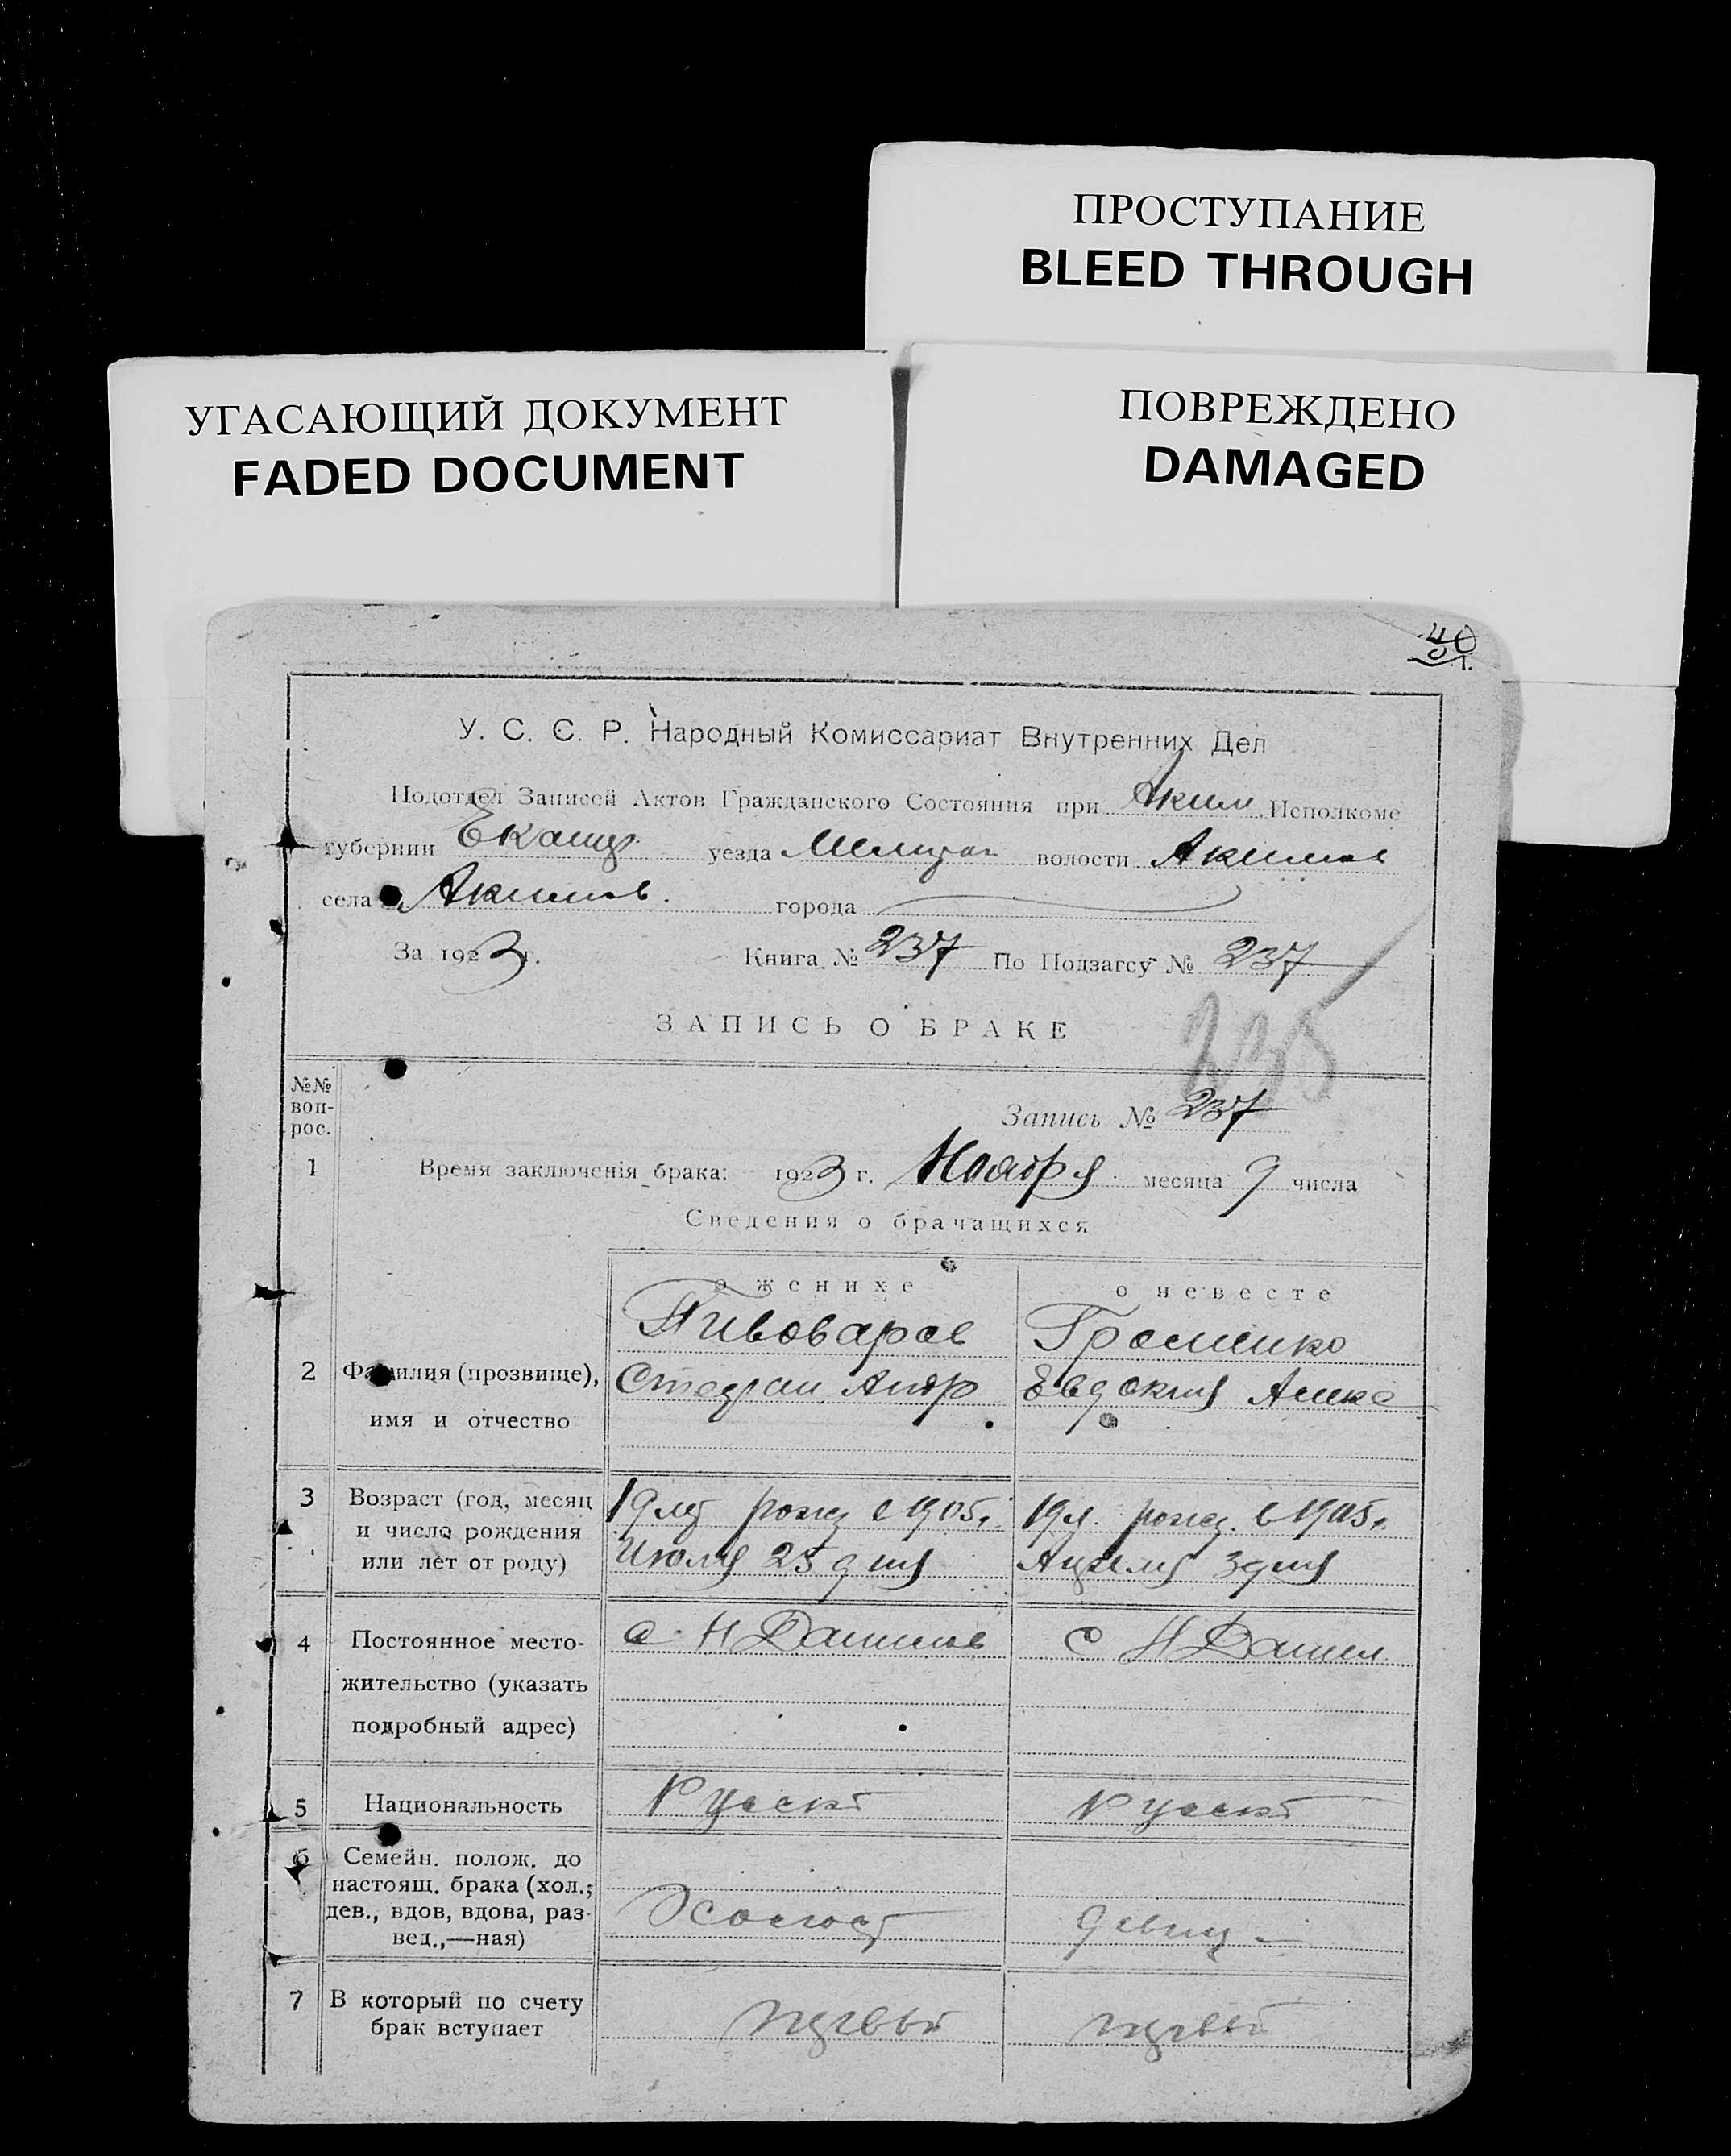 ПРОСТУПАНИЕ
BLEED THROUGH
УГАСАЮЩИЙ ДОКУМЕНТ
FADED DOCUMENT
ПОВРЕЖДЕНО
DAMAGED
40
У. С. С. Р. Народный Комиссариат Внутренних Дел
Подотдел Записей Актов Гражданского Состояния при Аким. Исполкоме
губернии Екатер. уезда Мелитоп волости Акимов
села Акимов. города
За 1923 г. Книга № 237 По Подзагсу № 237
ЗАПИСЬ О БРАКЕ
235
№№ воп-рос.
Запись № 237
1 Время заключенія брака: 1923 г. Ноября месяца 9 числа
Сведения о брачащихся
о женихе о невесте
Пивоваров Громенко
2 Фамилия (прозвище), Стефан Андр Евдокия
имя и отчество
3 Возраст (год, месяц 19 лет рожд в 1905г. 19 л. рожд. в 1905г.
и число рождения Июля 25 дня Апреля 3 дня
или лет от роду)
4 Постоянное место- с. Н Данилов с Н Данил
жительство (указать
подробный адрес)
5 Национальность Русск Русск
6 Семейн. полож. до
настоящ. брака (хол.;
дев., вдов, вдова, раз- Холост девиц
вед.,—ная)
7 В который по счету
брак вступает первый первый